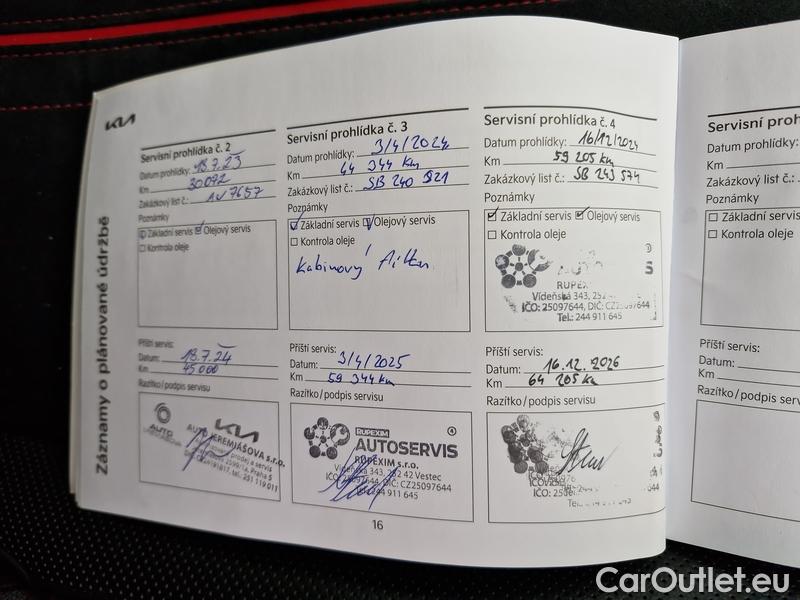 KIA
Záznamy o plánované údržbě
Servisní prohlídka č. 2
Datum prohlídky: 18.7.23
Km 30092
Zakázkový list č.: AV7657
Poznámky
Základní servis Olejový servis
Kontrola oleje
Příští servis:
Datum: 18.7.24
Km 45000
Razítko/podpis servisu
AUTO JEREMIÁŠOVA s.r.o.
prodej a servis
tel: 251 119 011
Servisní prohlídka č. 3
Datum prohlídky: 3/4/2024
Km 44 344 km
Zakázkový list č.: SB 240 921
Poznámky
Základní servis Olejový servis
Kontrola oleje
Kabinový filter
Příští servis:
Datum: 3/4/2025
Km 59 344 km
Razítko/podpis servisu
RUPEXIM 4
AUTOSERVIS
RUPEXIM s.r.o.
Vídeňská 343, 252 42 Vestec
DIČ: CZ25097644
244 911 645
Servisní prohlídka č. 4
Datum prohlídky: 16/12/2024
Km 59 205 km
Zakázkový list č.: SB 243 574
Poznámky
Základní servis Olejový servis
Kontrola oleje
Vídeňská 343, 252
IČO: 25097644, DIČ: CZ25097644
Tel.: 244 911 645
Příští servis:
Datum: 16.12.2026
Km 64 205 km
Razítko/podpis servisu
16
Servisní proh
Datum prohlídky:
Km
Zakázkový list č.:
Poznámky
Základní servis
Kontrola oleje
Příští servis:
Datum:
Km
Razítko/podpis s
CarOutlet.eu